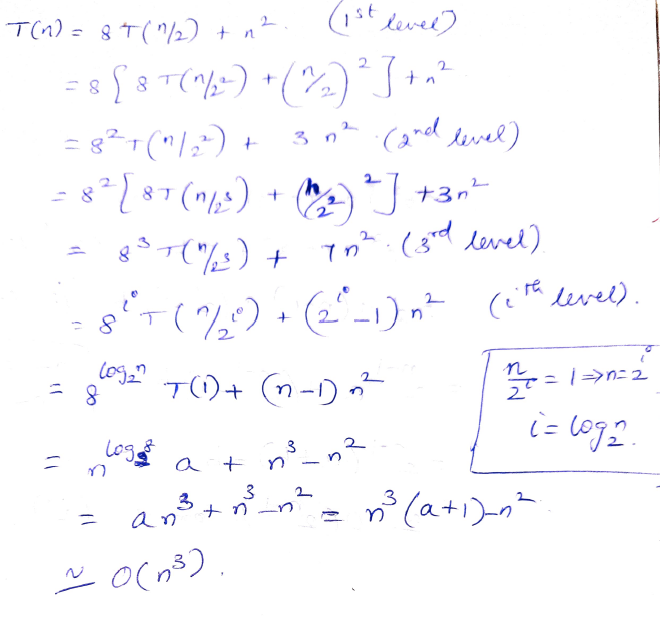 T(n) = 8 T(n/2) + n². (1st level)
= 8 [ 8 T(n/2²) + (n/2)² ] + n²
= 8² T(n/2²) + 3 n² . (2nd level)
= 8² [ 8T(n/2³) + (n/2²)² ] + 3n²
= 8³ T(n/2³) + 7n² . (3rd level)
= 8^i T(n/2^i) + (2^i - 1) n² (ith level).
= 8^(log₂n) T(1) + (n-1) n²
n/2^i = 1 ⇒ n = 2^i
i = log₂n.
= n^(log₂8) a + n³ - n²
= an³ + n³ - n² = n³(a+1) - n²
≃ O(n³).